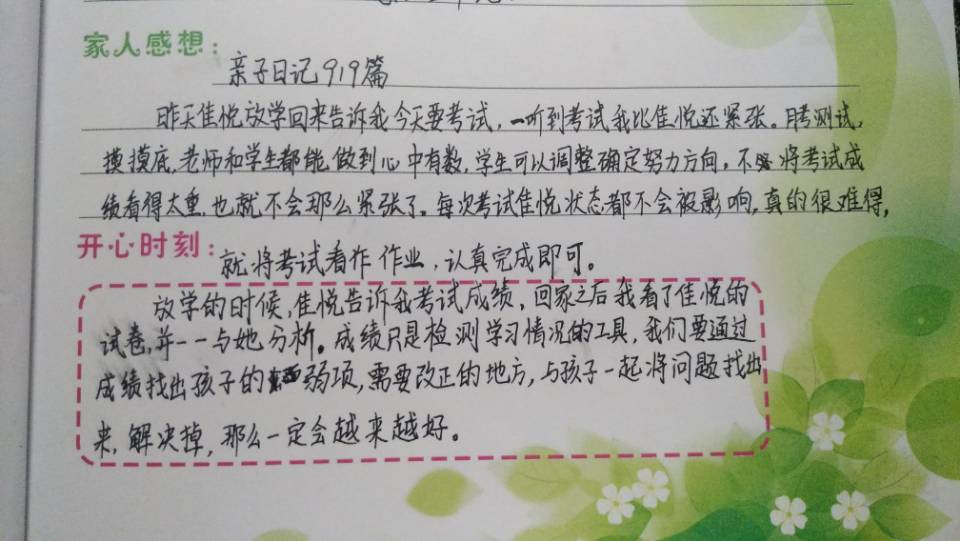 家人感想:
亲子日记919篇
昨天佳悦放学回来告诉我今天要考试,一听到考试我比佳悦还紧张。月考测试,
摸摸底,老师和学生都能做到心中有数,学生可以调整确定努力方向,不将考试成
绩看得太重,也就不会那么紧张了。每次考试佳悦状态都不会被影响,真的很难得,
开心时刻:
就将考试看作作业,认真完成即可。
放学的时候,佳悦告诉我考试成绩,回家之后我看了佳悦的
试卷,并一一与她分析。成绩只是检测学习情况的工具,我们要通过
成绩找出孩子的弱项,需要改正的地方,与孩子一起将问题找出
来,解决掉,那么一定会越来越好。